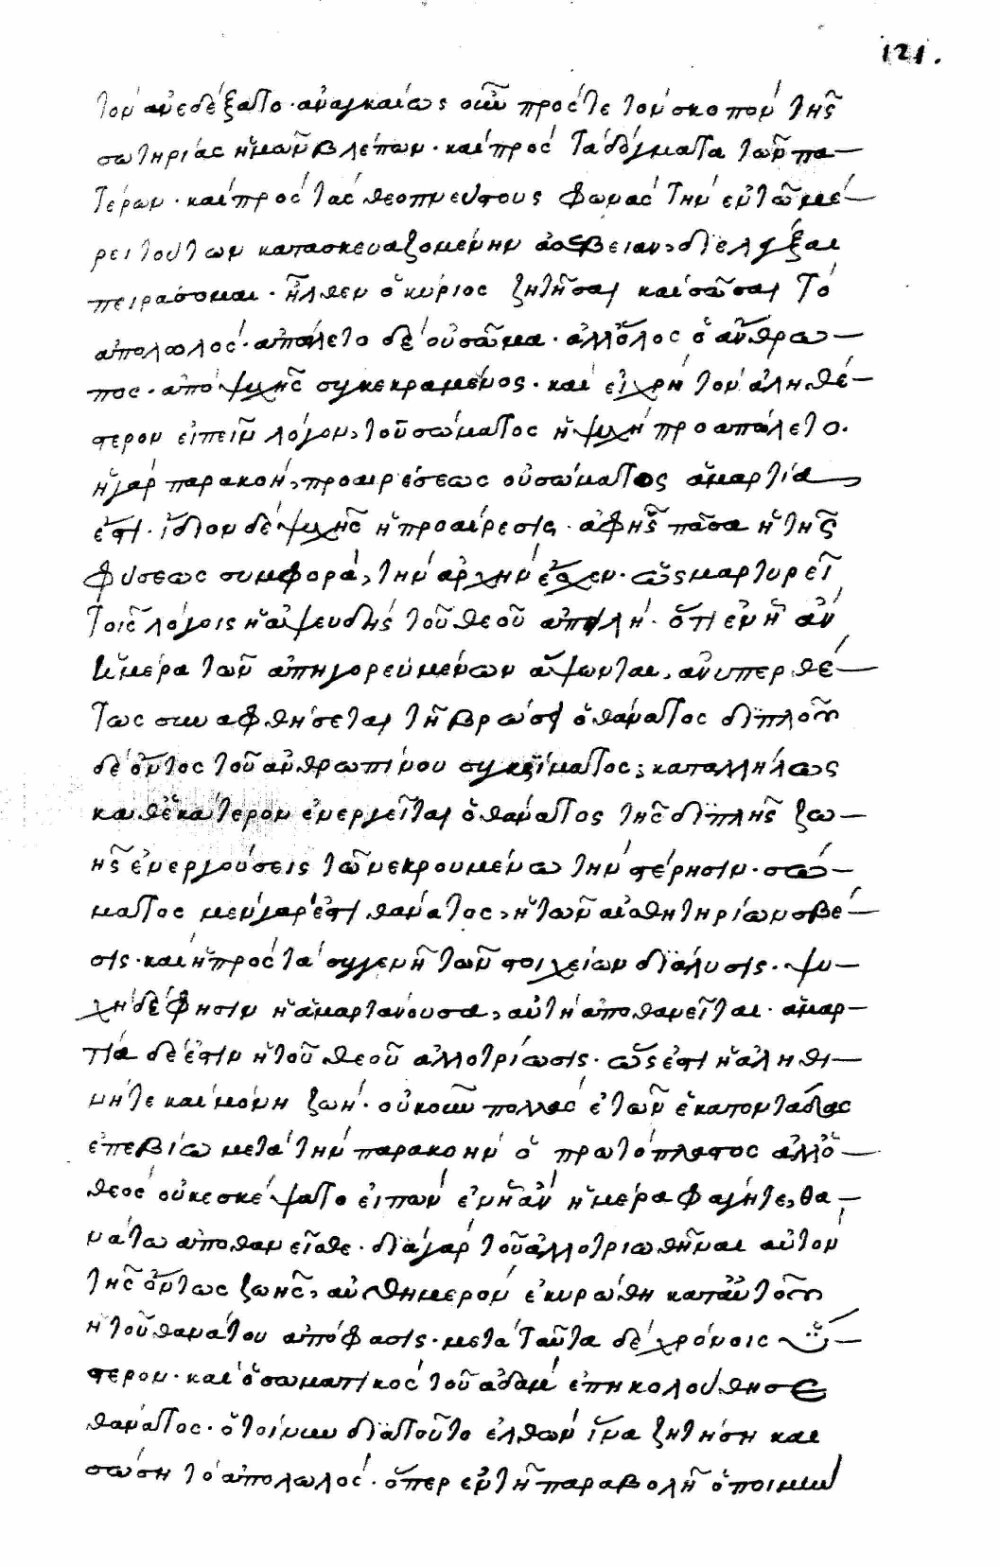 121.
τὸν ἀνεδέξατο· ἀναγκαίως οὖν πρός τε τὸν σκοπὸν τῆς
σωτηρίας ἡμῶν βλέπων· καὶ πρὸς τὰ δόγματα τῶν πα-
τέρων· καὶ πρὸς τὰς θεοπνεύστους φωνὰς τὴν ἐν τῷ μέ-
ρει τούτων κατασκευαζομένην ἀσέβειαν, διελέγξαι
πειράσομαι· ἦλθεν ὁ κύριος ζητῆσαι καὶ σῶσαι τὸ
ἀπολωλός· ἀπώλετο δὲ οὐ σῶμα· ἀλλ' ὅλος ὁ ἄνθρω-
πος· ἀπὸ ψυχῆς συγκεκραμένος· καὶ εἰ χρὴ τὸν ἀληθέ-
στερον εἰπεῖν λόγον, τοῦ σώματος ἡ ψυχὴ προαπώλετο.
ἡ γὰρ παρακοή, προαιρέσεως οὐ σώματος ἁμαρτία
ἐστι· ἴδιον δὲ ψυχῆς ἡ προαίρεσις· ἀφ' ἧς πᾶσα ἡ τῆς
φύσεως συμφορά, τὴν ἀρχὴν ἔσχεν· ὡς μαρτυρεῖ
τοῖς λόγοις ἡ ἀψευδὴς τοῦ θεοῦ ἀπειλή· ὅτι ἐν ᾗ ἂν
ἡμέρα τῶν ἀπηγορευμένων ἅψωνται, ἀνυπερθέ-
τως συναφθήσεται τῇ βρώσει ὁ θάνατος διπλοῦ
δὲ ὄντος τοῦ ἀνθρωπίνου συγκρίματος; καταλλήλως
καθ' ἑκάτερον ἐνεργεῖται ὁ θάνατος τῆς διπλῆς ζω-
ῆς ἐνεργούσεις τῷ νεκρουμένω τὴν στέρησιν· σώ-
ματος μὲν γάρ ἐστι θάνατος, ἡ τῶν αἰσθητηρίων σβέ-
σις· καὶ ἡ πρὸς τὰ συγγενῆ τῶν στοιχείων διάλυσις· ψυ-
χὴ δέ φησιν ἡ ἁμαρτάνουσα, αὐτὴ ἀποθανεῖται· ἁμαρ-
τία δέ ἐστιν ἡ τοῦ θεοῦ ἀλλοτρίωσις· ὥς ἐστι ἡ ἀληθι-
νή τε καὶ μόνη ζωή· οὐκοῦν πολλὰς ἐτῶν ἑκατοντάδας
ἐπεβίω μετὰ τὴν παρακοὴν ὁ πρωτόπλαστος ἀλλ' ὁ
θεὸς οὐκ ἐσκέψατο εἰπὼν ἐν ᾗ ἂν ἡμέρα φάγητε, θα-
νάτω ἀποθανεῖσθε· διὰ γὰρ τοῦ ἀλλοτριωθῆναι αὐτὸν
τῆς ὄντως ζωῆς, αὐθήμερον ἐκυρώθη κατ' αὐτοῦ
ἡ τοῦ θανάτου ἀπόφασις· μετὰ ταῦτα δὲ χρόνοις ὕ-
στερον· καὶ ὁ σωματικὸς τοῦ ἀδὰμ ἐπηκολούθησε
θάνατος· ὁ τοίνυν διὰ τοῦτο ἐλθὼν ἵνα ζητήση καὶ
σώση τὸ ἀπολωλός· ὅπερ ἐν τῇ παραβολῇ ὁ ποιμὴν